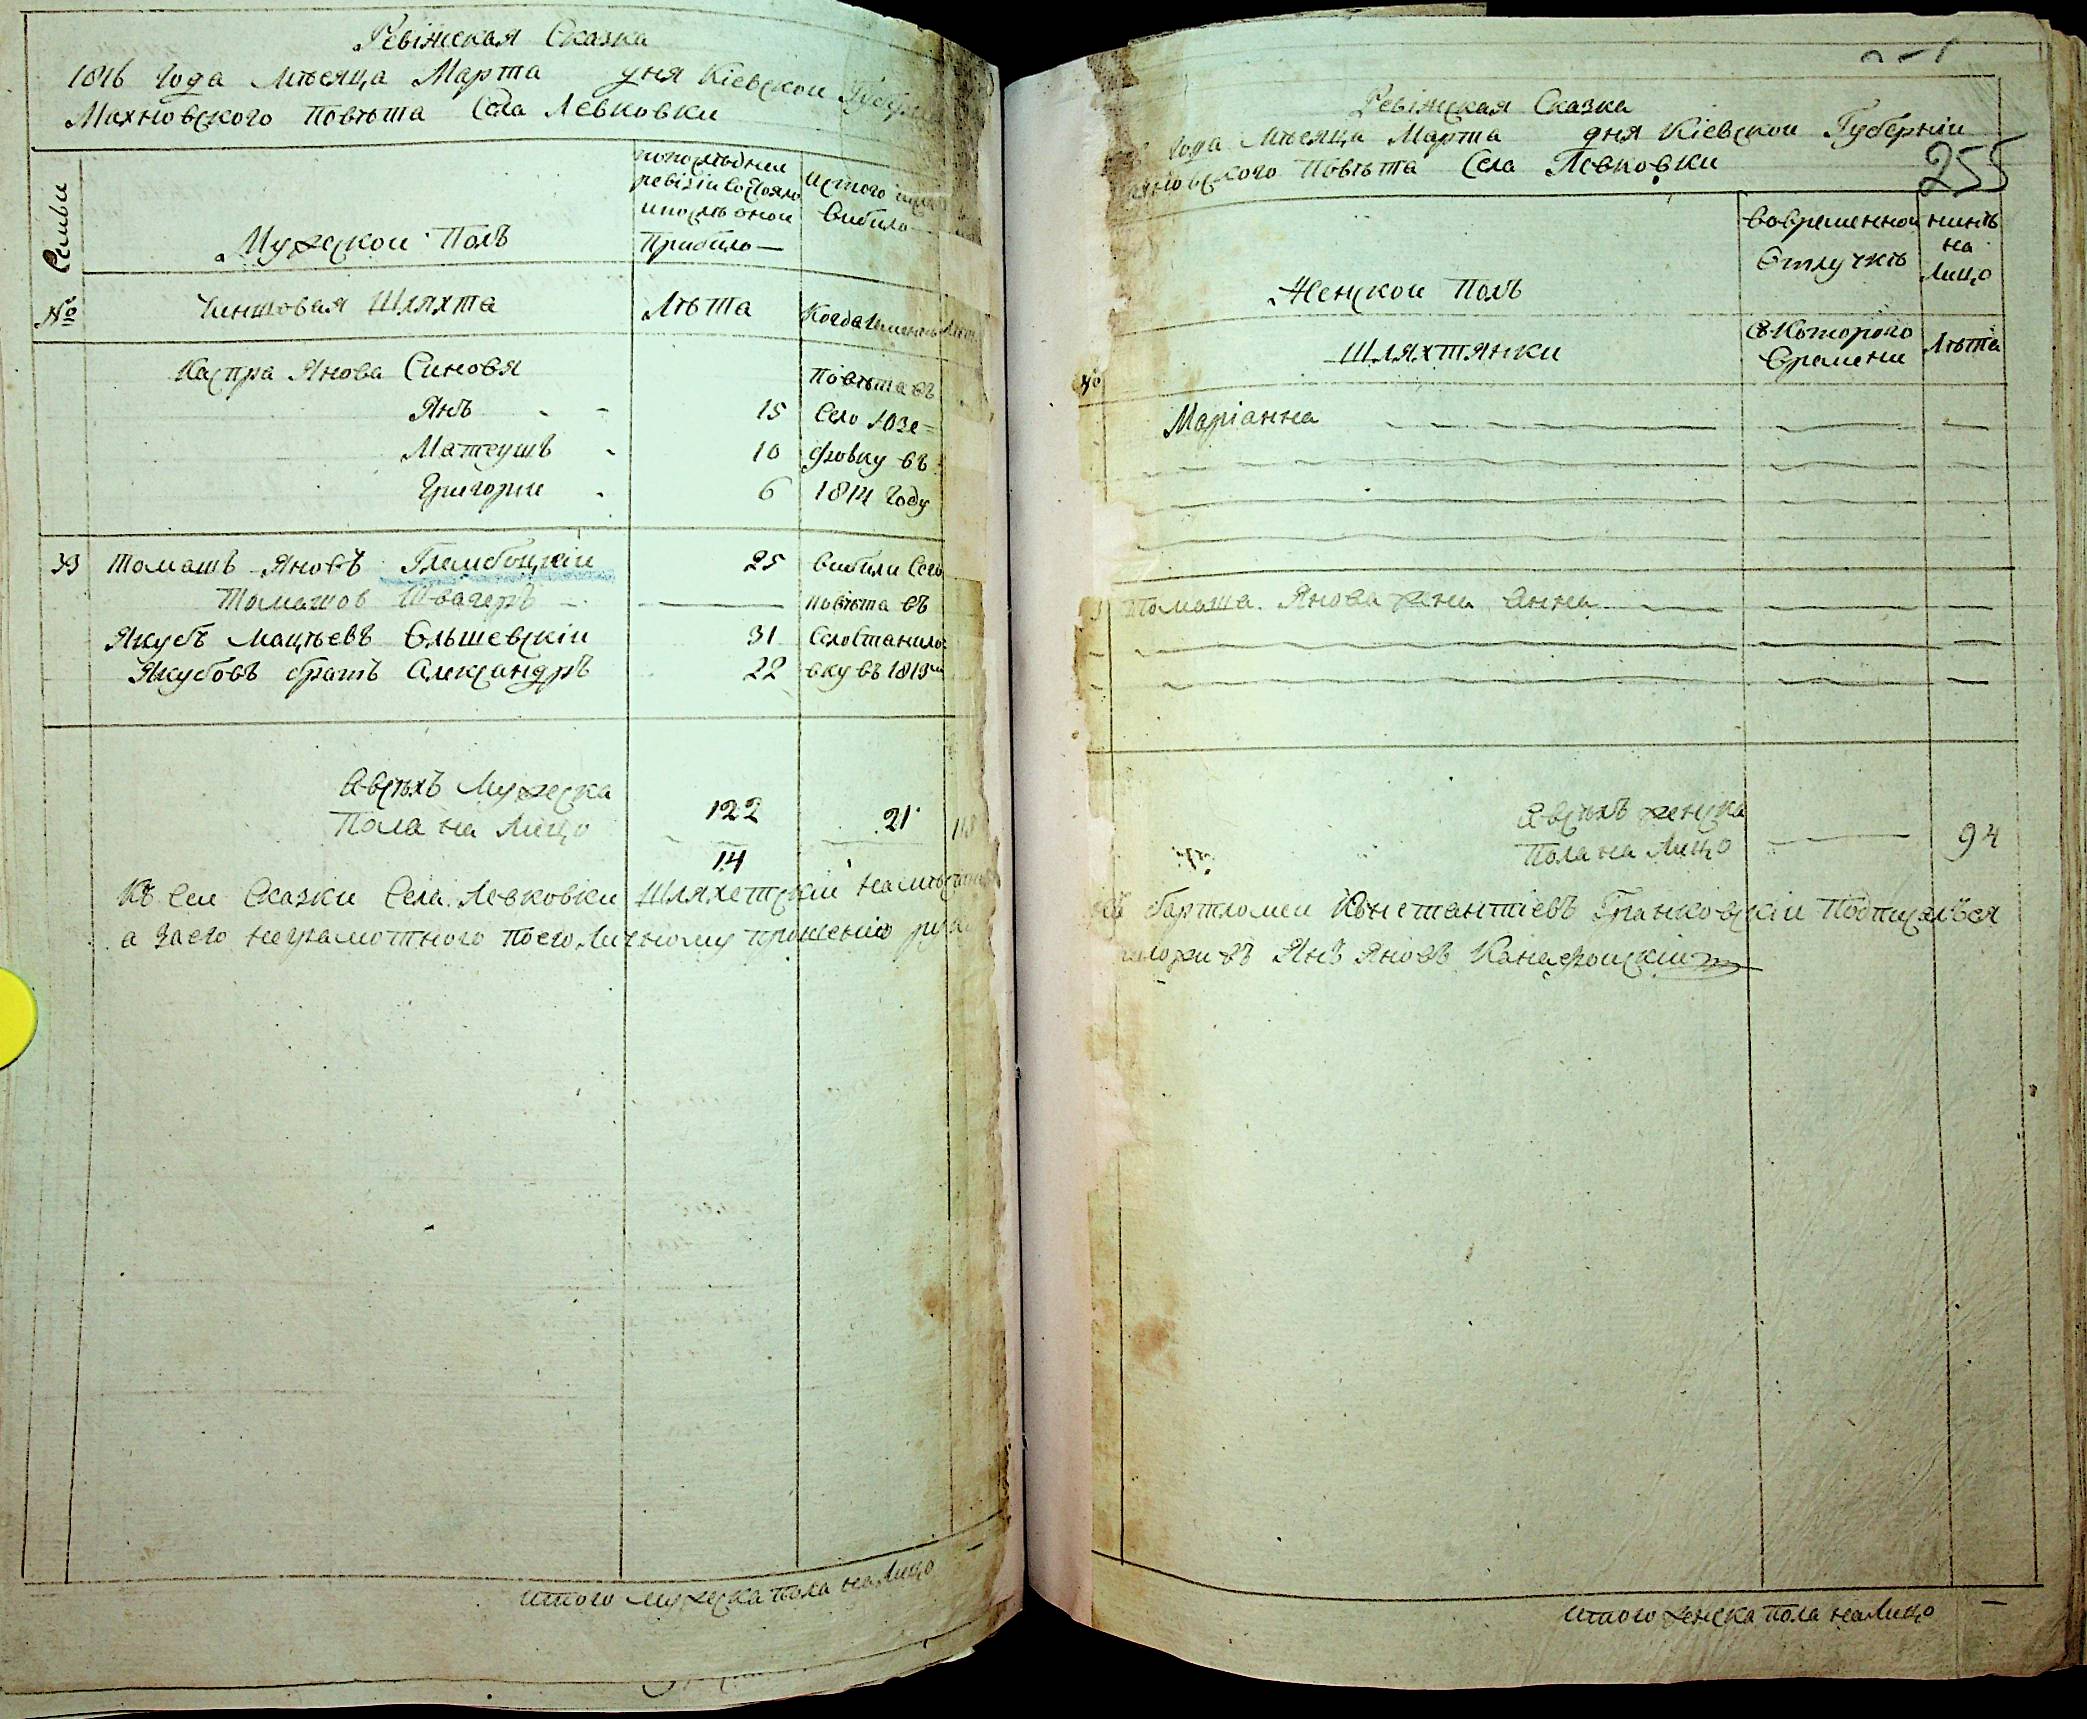 Ревіжская Сказка
1816 Года Мѣсяца Марта дня Кіевской
Махновского Повѣта Села Левковки
Семьи
№
Мужеской Полъ
Чиншовая Шляхта
попослѣдней
ревізіи Состояло
ипослѣ оной
Прибило
Лѣта
Изтого числа
Вибило
Когда Именно
Каспра Янова Синовя
Янъ 15
Матеушъ 10
Григорій 6
Повѣта въ
Село Юзе=
фовку въ
1814 Году
33 Томашъ Яновъ Глембоцкій 25 вибили Сего
Томашов Швагеръ Повѣта въ
Якубъ Мацѣевъ Ольшевскій 31 Село Станило=
Якубовъ братъ Александръ 22 вку въ 1813
А всѣхъ Мужеска
Пола на Лицо 122 21
14
Къ Сей Сказки Села Левковки Шляхетскій
а За его неграмотного по его Личному прошенію
Итого мужеска пола на Лицо
Ревіжская Сказка
Года Мѣсяца Марта дня Кіевской Губерніи
Повѣта Села Левковки
255
№
Женской Полъ
Шляхтянки
Вовременной
Отлучкѣ
Съ Которого
Времени
нинѣ
на
Лицо
Лѣта
Маріанна
Томаша Янова жена Анна
А всѣхъ женска
Пола на Лицо 94
Бартломей Константіевъ Гранковскій Подписался
Янъ Яновъ Канафоцкій
Итого женска пола на Лицо